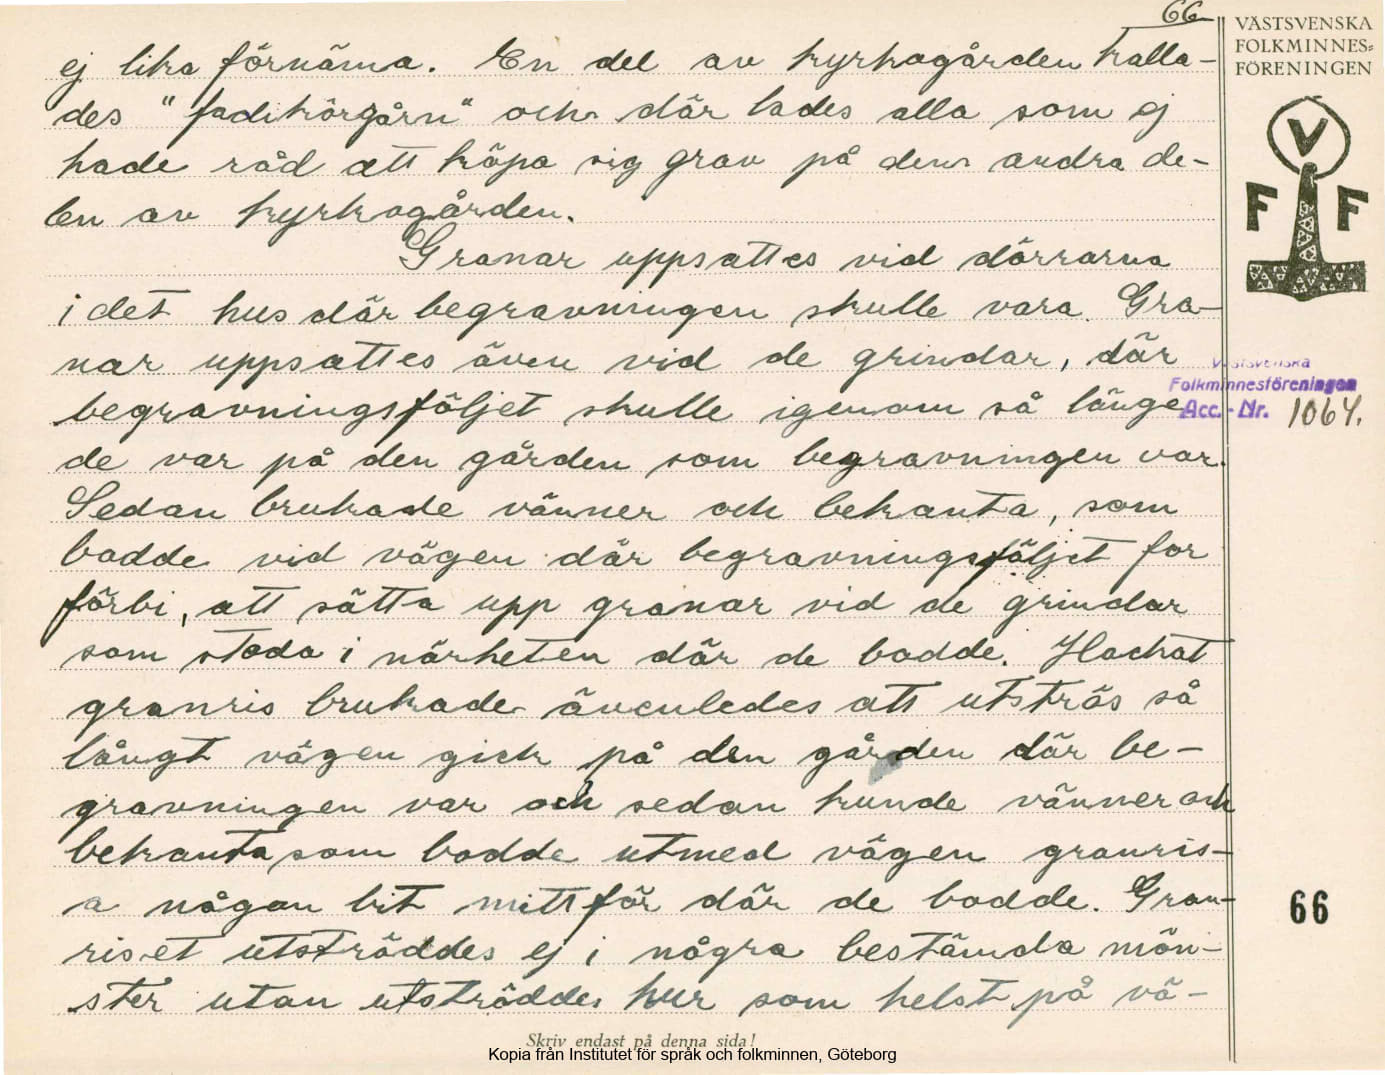 66
VÄSTSVENSKA
FOLKMINNES=
FÖRENINGEN
V
F F
ej lika förnäma. En del av kyrkogården kalla-
des "fadikörgårn" och där lades alla som ej
hade råd att köpa sig grav på den andra de-
len av kyrkogården.
Granar uppsattes vid dörrarna
i det hus där begravningen skulle vara. Gra-
nar uppsattes även vid de grindar, där
begravningsföljet skulle igenom så länge
de var på den gården som begravningen var.
Sedan brukade vänner och bekanta, som
bodde vid vägen där begravningsföljet for
förbi, att sätta upp granar vid de grindar
som stodo i närheten där de bodde. Hackat
granris brukade ävenledes att utströs så
långt vägen gick på den gården där be-
gravningen var och sedan kunde vänner och
bekanta som bodde utmed vägen granris-
a någon bit mitt för där de bodde. Gran-
riset utströddes ej i några bestämda mön-
ster utan utströddes hur som helst på vä-
Västsvenska
Folkminnesföreningen
Acc.-Nr. 1064.
66
Skriv endast på denna sida!
Kopia från Institutet för språk och folkminnen, Göteborg